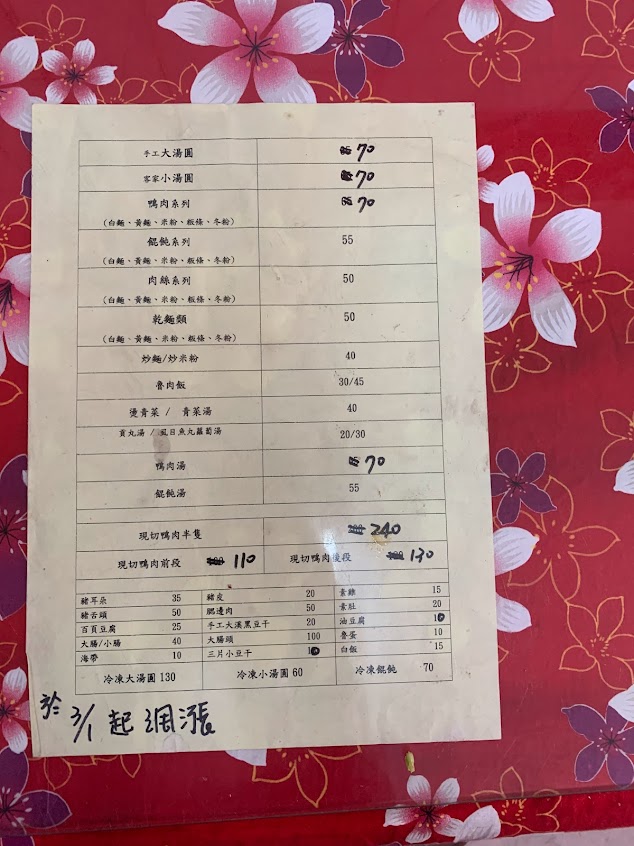 手工大湯圓 70
客家小湯圓 70
鴨肉系列 70
(白麵、黃麵、米粉、粄條、冬粉)
餛飩系列 55
(白麵、黃麵、米粉、粄條、冬粉)
肉絲系列 50
(白麵、黃麵、米粉、粄條、冬粉)
乾麵類 50
(白麵、黃麵、米粉、粄條、冬粉)
炒麵/炒米粉 40
魯肉飯 30/45
燙青菜 / 青菜湯 40
貢丸湯 / 虱目魚丸蘿蔔湯 20/30
鴨肉湯 70
餛飩湯 55
現切鴨肉半隻 240
現切鴨肉前段 110 現切鴨肉後段 130
豬耳朵 35 豬皮 20 素雞 15
豬舌頭 50 肥邊肉 50 素肚 20
百頁豆腐 25 手工大溪黑豆干 20 油豆腐 10
大腸/小腸 40 大腸頭 100 魯蛋 10
海帶 10 三片小豆干 10 白飯 15
冷凍大湯圓 130 冷凍小湯圓 60 冷凍餛飩 70
於 3/1 起調漲